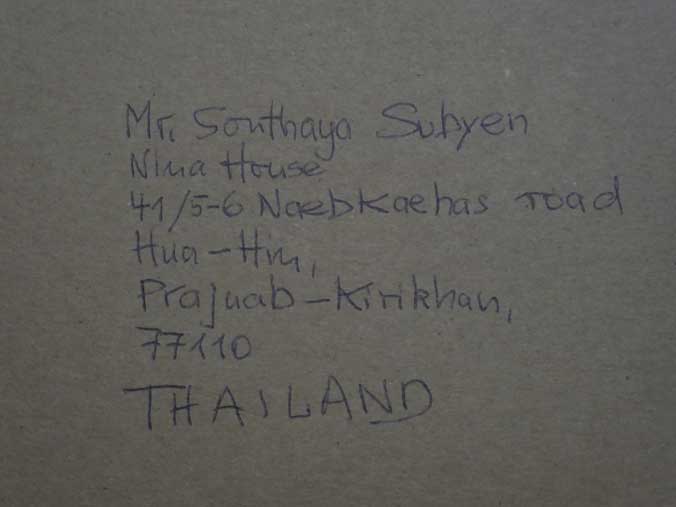 Mr. Sonthaya Subyen
Nina House
41/5-6 Naebkaehas road
Hua-Hin,
Prajuab-Kirikhan,
77110
THAILAND